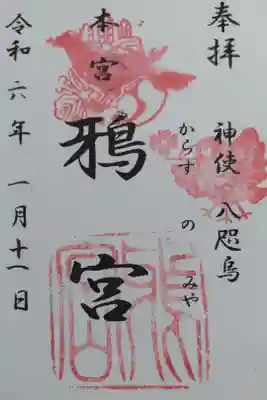 奉拝
神使 八咫烏
からす の みや
本宮
鴉宮
令和六年 一月十一日